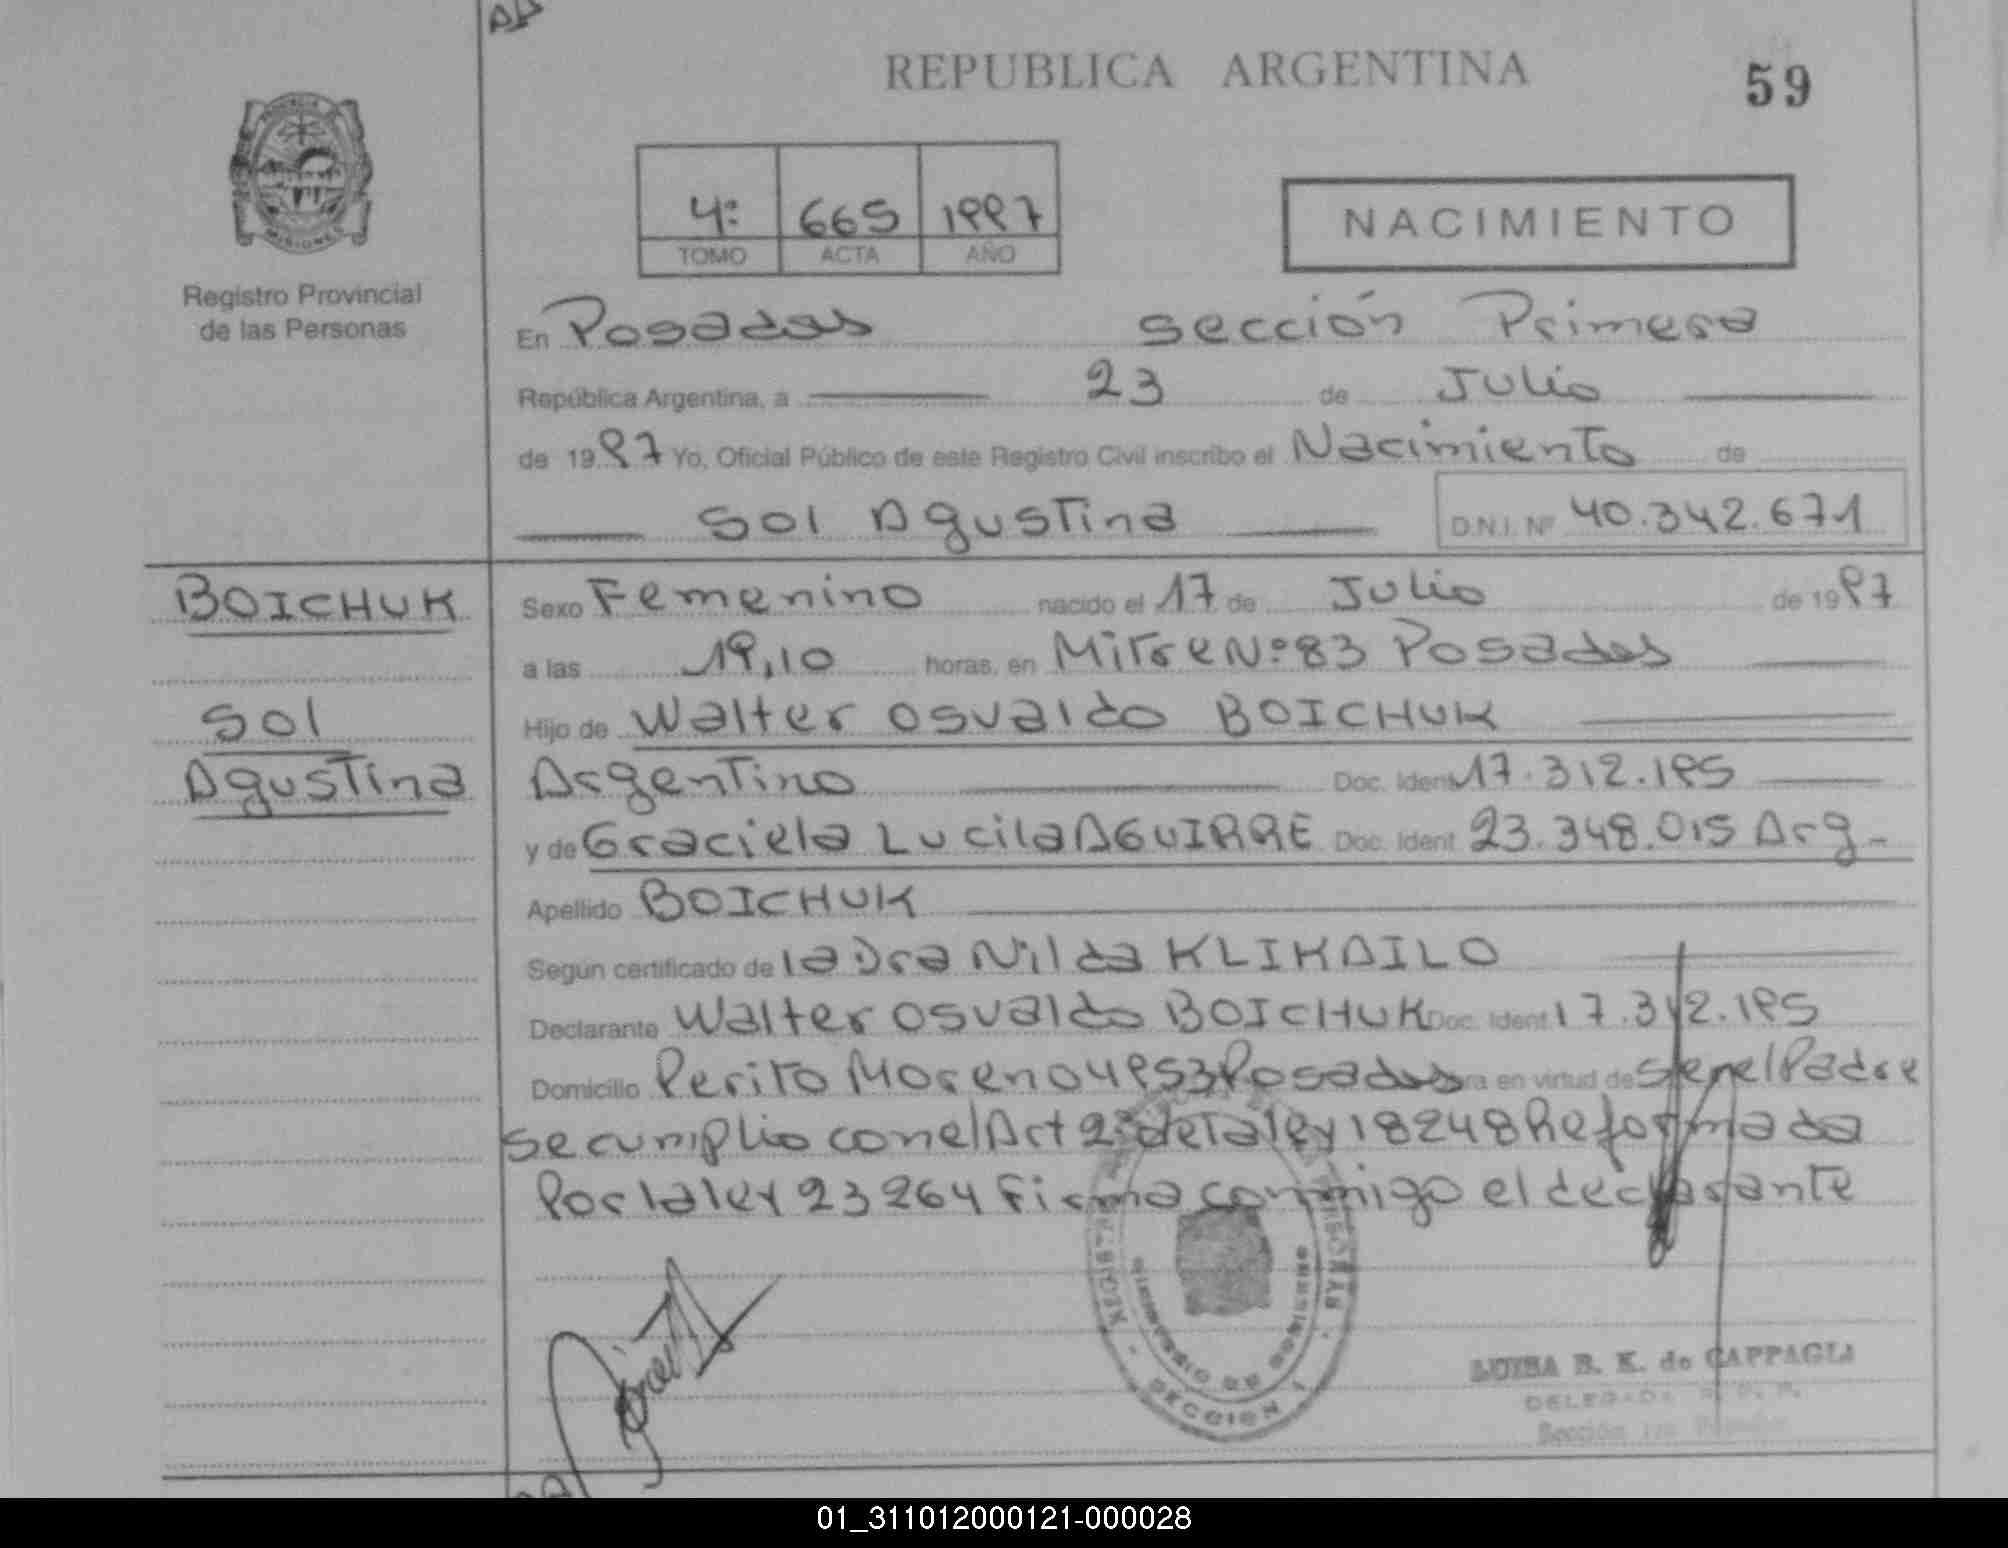 REPUBLICA ARGENTINA
59
4º 665 1997
TOMO ACTA AÑO
NACIMIENTO
MISIONES
Registro Provincial
de las Personas
En Posadas sección Primera
República Argentina, a 23 de Julio
de 1997 Yo, Oficial Público de este Registro Civil inscribo el Nacimiento de
Sol Agustina D.N.I. Nº 40.342.671
BOICHUK
Sol
Agustina
Sexo Femenino nacido el 17 de Julio de 1997
a las 19,10 horas, en Mitre Nº 83 Posadas
Hijo de Walter Osvaldo BOICHUK
Argentino Doc. Ident 17.312.195
y de Graciela Lucila AGUIRRE Doc. Ident 23.348.015 Arg-
Apellido BOICHUK
Según certificado de la Dra Nilda KLIKAILO
Declarante Walter Osvaldo BOICHUK Doc. Ident 17.312.195
Domicilio Perito Moreno 4953 Posadas en virtud de ser el Padre
se cumplio con el Art 2º de la ley 18248 Reformada
Por la ley 23264 Firma conmigo el declarante
PERSONAS
MINISTERIO DE GOBIERNO
SECCION 1
LUISA B. K. de CAPPAGLI
DELEGADA R. P. P.
Sección 1ra Posadas
01_311012000121-000028